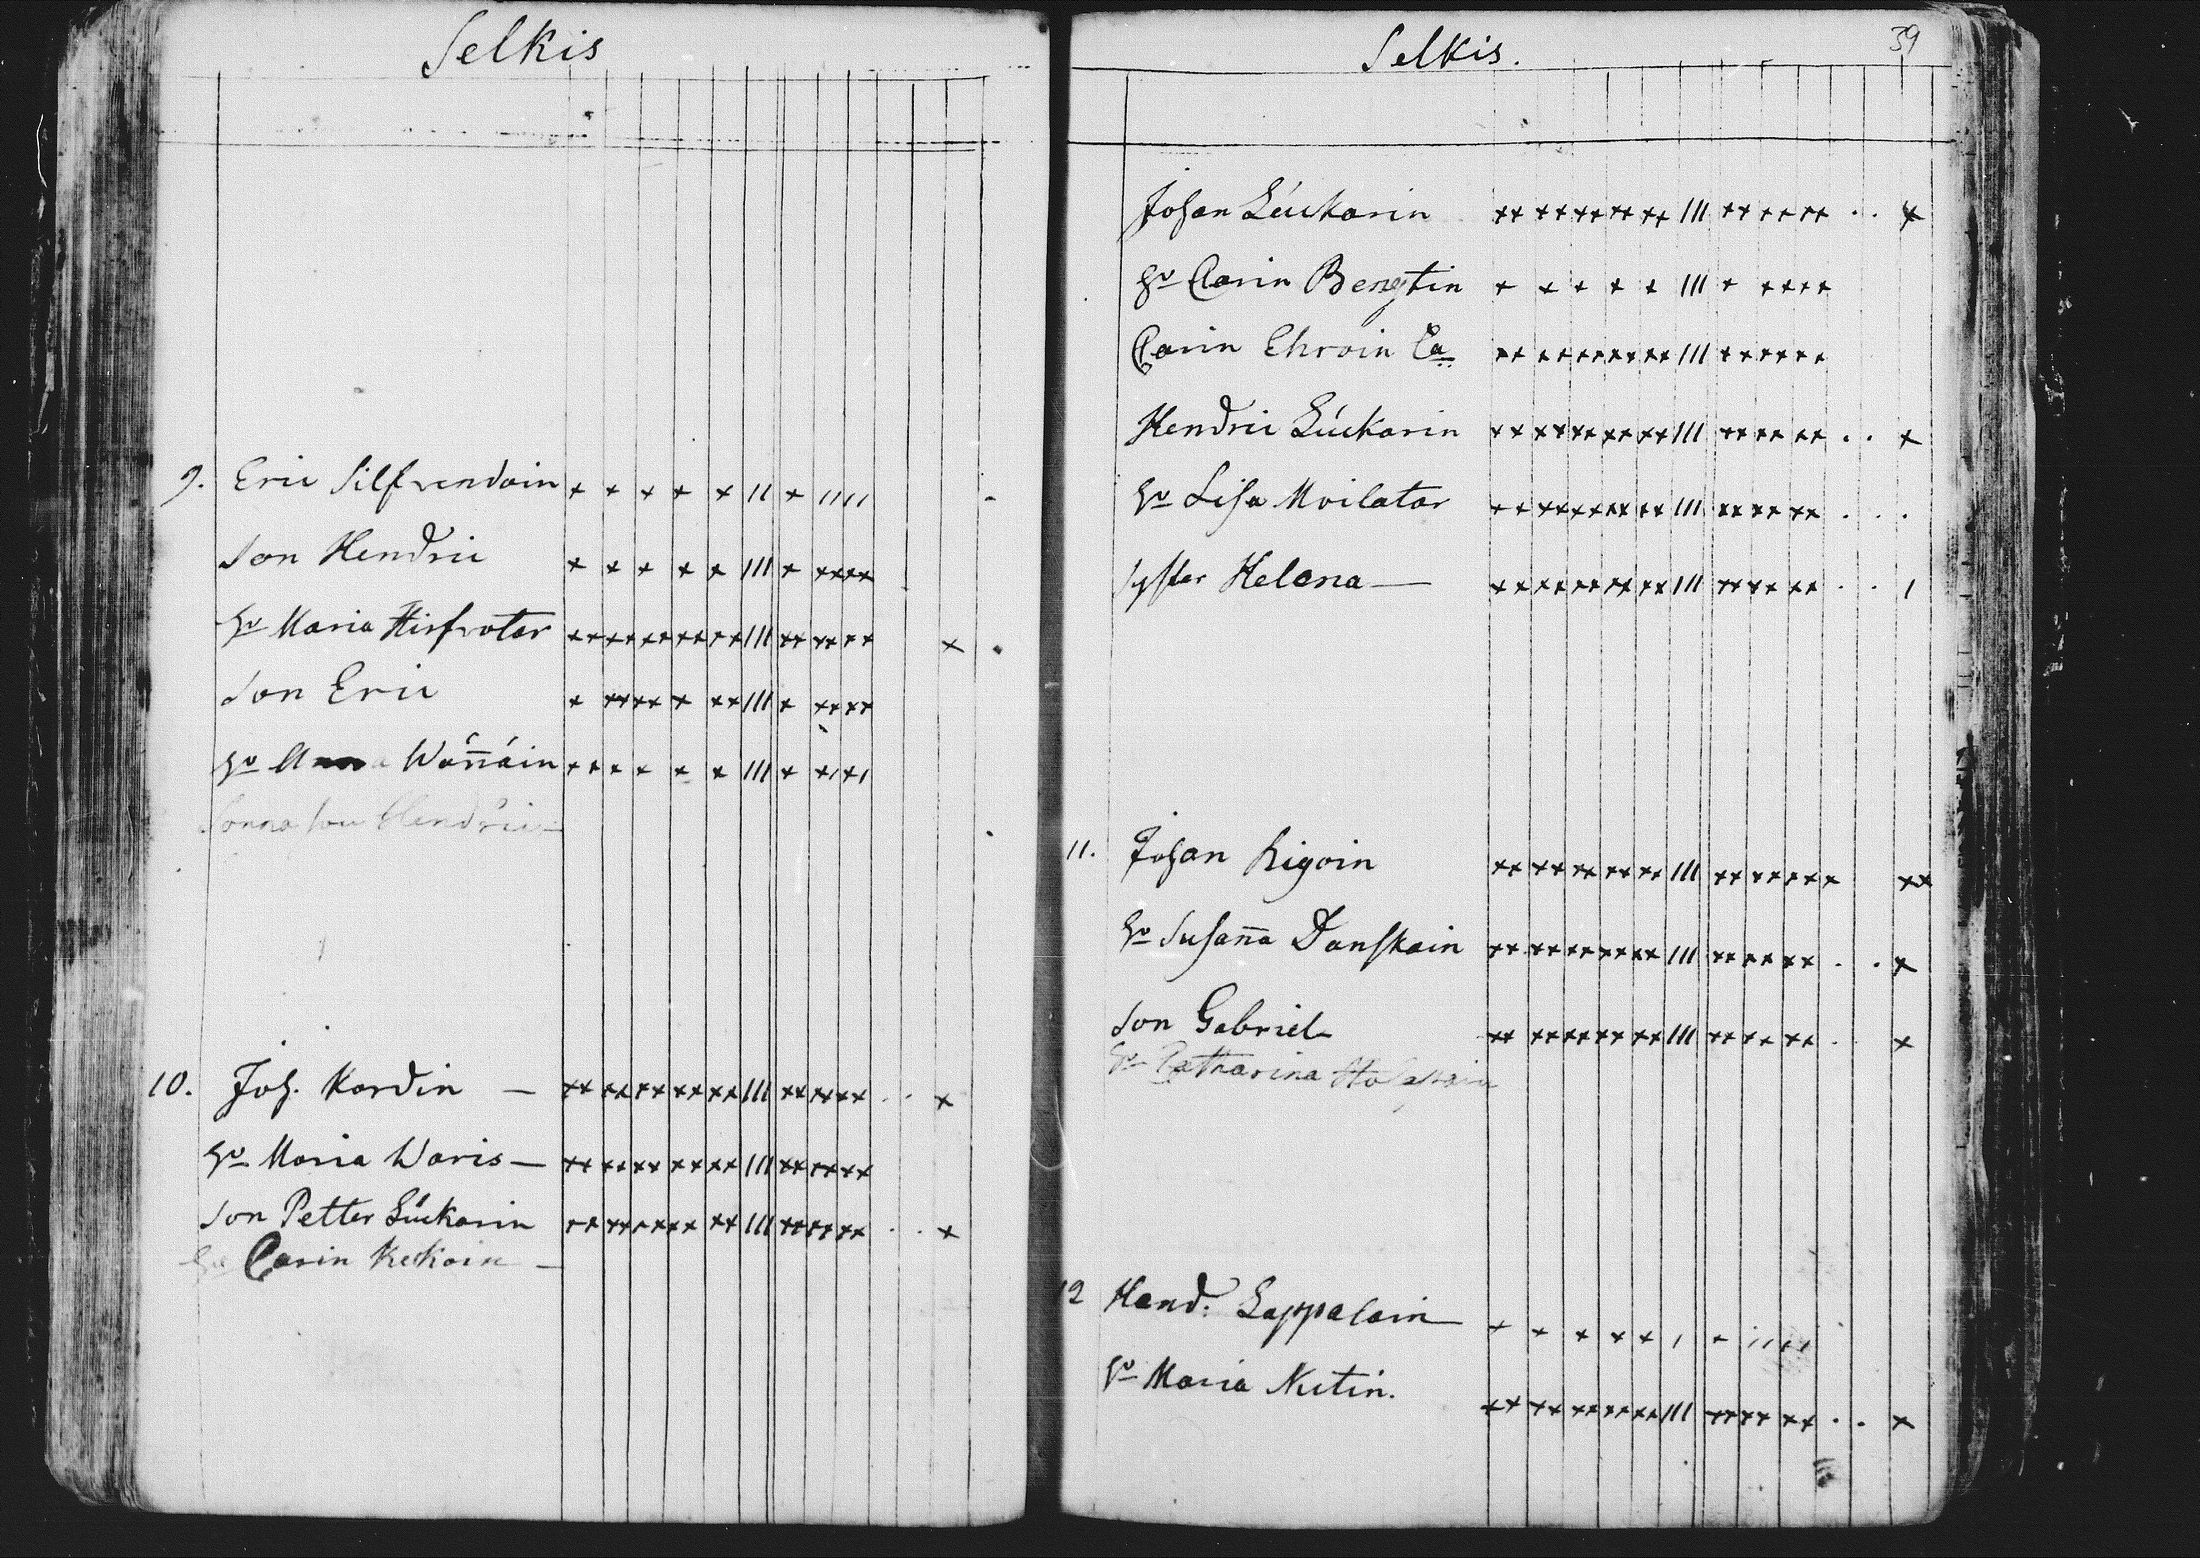 Selkis
9. Eric Silfvendoin
Son Hendric
Hu Maria Hirfvotar
Son Eric
Hu Anna Wäññäin
Sonna Hendric
10. Joh. Kordin —
Hu Maria Waris —
Son Petter Luckarin
Hu Carin Keckoin —
Selkis. 39
Johan Luckarin
Hu Carin Bengtin
Carin Ehroin Ea
Hendric Luckarin
Hu Lisa Moilatar
Syster Helena —
11. Johan Rigoin
Hu Susaña Danskain
Son Gabriel
Hu Catharina
12 Hend. Lappalain
Hu Maria Nutin.